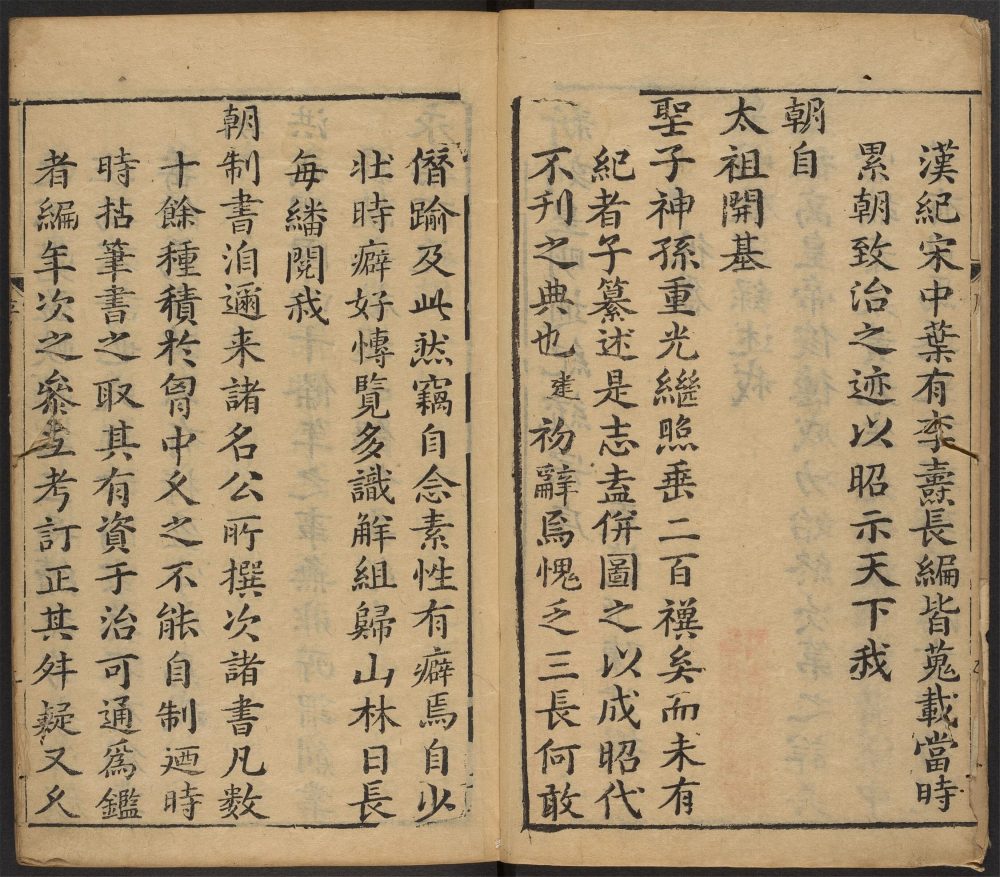 漢紀宋中葉有李燾長編皆蒐載當時
累朝致治之迹以昭示天下我
朝自
太祖開基
聖子神孫重光繼照垂二百禩矣而未有
紀者子纂述是志盍併圖之以成昭代
不刊之典也建初辭焉愧乏三長何敢
僭踰及此然竊自念素性有癖焉自少
壯時癖好慱覽多識解組歸山林日長
每繙閱我
朝制書洎邇来諸名公所撰次諸書凡數
十餘種積於胷中久之不能自制迺時
時拈筆書之取其有資于治可通爲鑑
者編年次之參互考訂正其舛疑又久